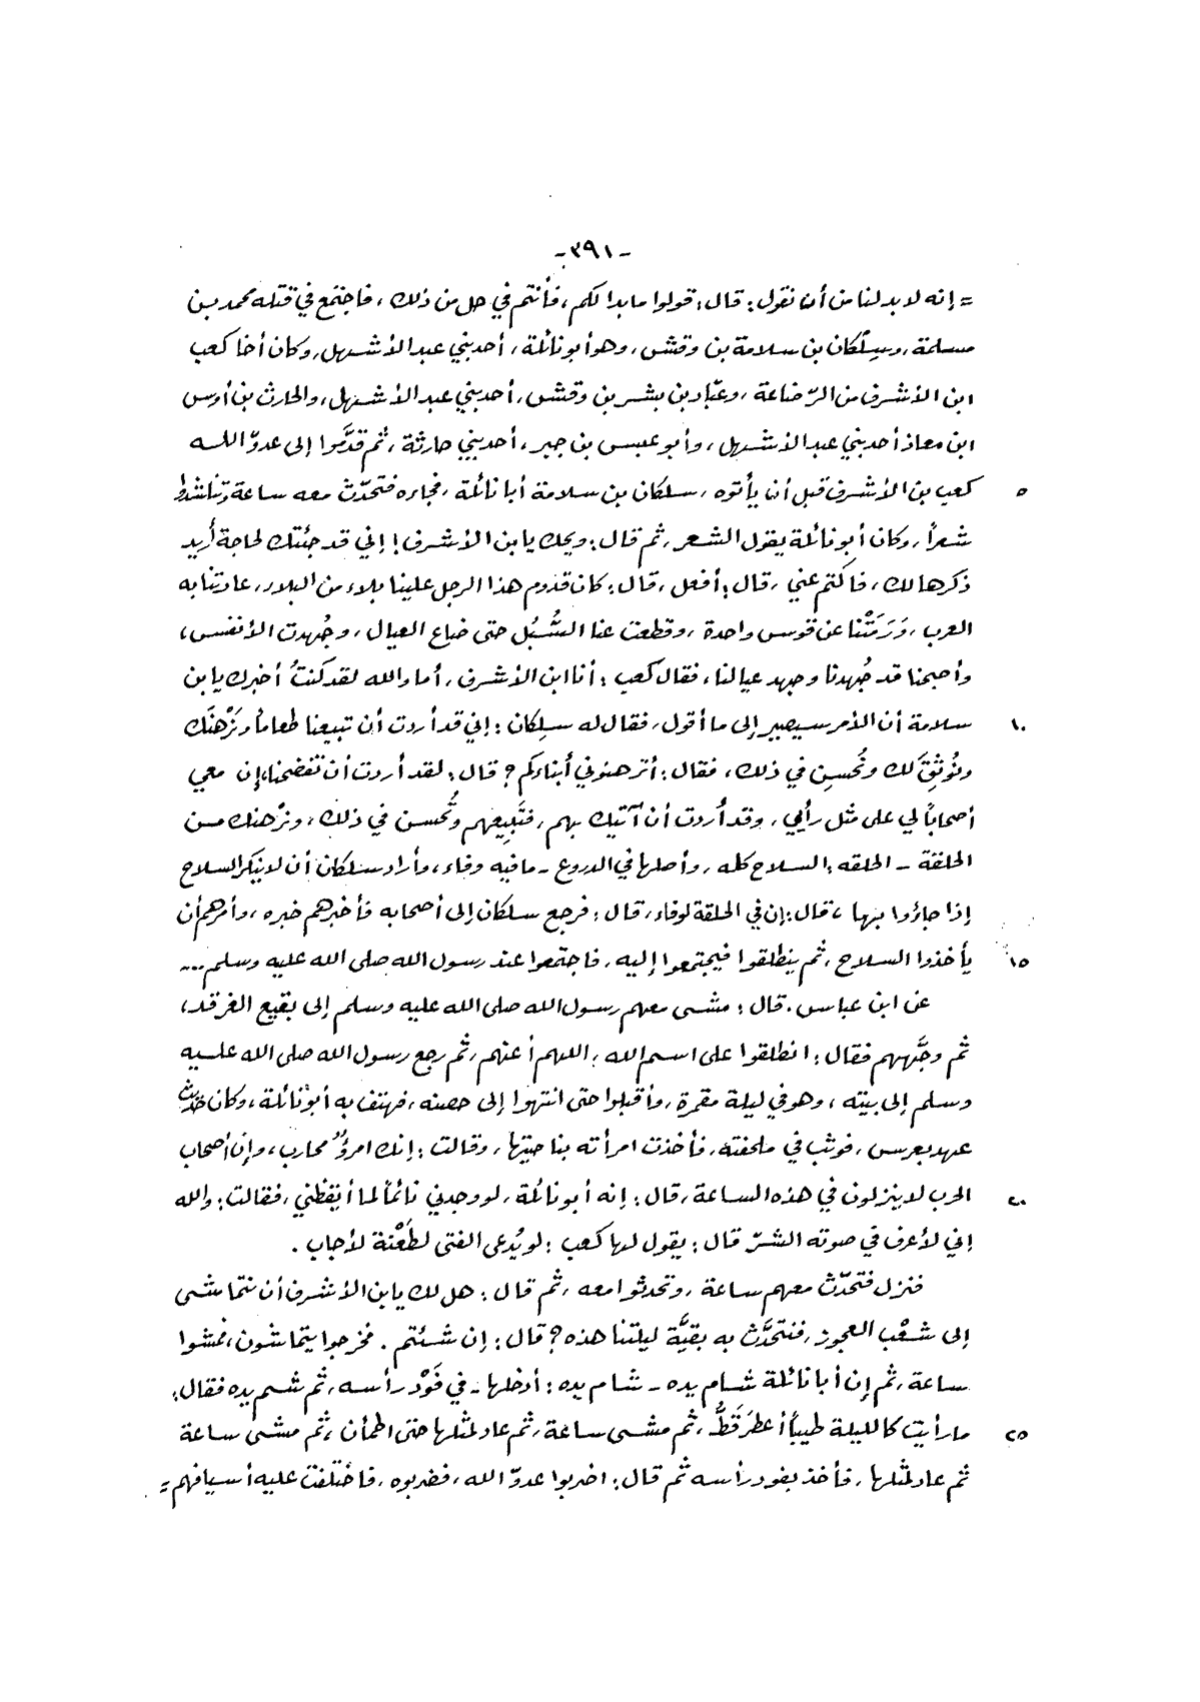 -٣٩١-
= إنه لا بد لنا من أن نقول: قال: قولوا ما بدا لكم، فأنتم في حل من ذلك، فاجتمع في قتله محمد بن
مسلمة، وسِلْكان بن سلامة بن وقش، وهو أبو نائلة، أحد بني عبد الأشهل، وكان أخا كعب
ابن الأشرف من الرّضاعة، وعبّاد بن بشر بن وقش، أحد بني عبد الأشهل، والحارث بن أوس
ابن معاذ أحد بني عبد الأشهل، وأبو عبس بن جبر، أحد بني حارثة، ثم قدَّموا إلى عدوّ اللـه
٥ كعب بن الأشرف قبل أن يأتوه، سلكان بن سلامة أبا نائلة، فجاءه فتحدّث معه ساعة وتناشدا
شعراً، وكان أبو نائلة يقول الشعر، ثم قال: ويحك يا بن الأشرف! إني قد جئتك لحاجة أريد
ذكرها لك، فاكتم عني، قال: أفعل، قال: كان قدوم هذا الرجل علينا بلاء من البلاء، عادتنا به
العرب، وَرَمَتْنا عن قوس واحدة، وقطعت عنا السُّبُل حتى ضاع العيال، وجُهدت الأنفس،
وأصبحنا قد جُهدنا وجهد عيالنا، فقال كعب: أنا ابن الأشرف، أما والله لقد كنتُ أخبرك يا بن
١٠ سلامة أن الأمر سيصير إلى ما أقول، فقال له سِلكان: إني قد أردت أن تبيعنا طعاماً ونَرْهنَك
ونُوثِقَ لك ونُحسِن في ذلك، فقال: أترهنوني أبناءكم؟ قال: لقد أردت أن تفضحنا، إن معي
أصحاباً لي على مثل رأيي، وقد أردت أن آتيك بهم، فتَبيعَهم وتُحسن في ذلك، ونرْهنك مـن
الحلقة - الحلقه: السلاح كله، وأصلها في الدروع - ما فيه وفاء، وأراد سلكان أن لا ينكر السلاح
إذا جاؤوا بها، قال: إن في الحلقة لوفاء، قال: فرجع سلكان إلى أصحابه فأخبرهم خبره، وأمرهم أن
١٥ يأخذوا السلاح، ثم ينطلقوا فيجتمعوا إليه، فاجتمعوا عند رسول الله صلى الله عليه وسلم...
عن ابن عباس. قال: مشى معهم رسول الله صلى الله عليه وسلم إلى بقيع الغرقد،
ثم وجَّههم فقال: انطلقوا على اسم الله؛ اللهم أعنهم، ثم رجع رسول الله صلى الله عليه
وسلم إلى بيته، وهو في ليلة مقمرة، وأقبلوا حتى انتهوا إلى حصنه، فهتف به أبو نائلة، وكان حديث
عهد بعرس، فوثب في ملحفته، فأخذت امرأته بناحيتها، وقالت: إنك امرؤٌ محارب، وإن أصحاب
٢٠ الحرب لا ينزلون في هذه الساعة، قال: إنه أبو نائلة، لو وجدني نائماً لما أيقظني، فقالت: والله
إني لأعرف في صوته الشرّ قال: يقول لها كعب: لو يُدعى الفتى لطَعْنة لأجاب.
فنزل فتحدّث معهم ساعة، وتحدثوا معه، ثم قال: هل لك يا بن الأشرف أن نتماشى
إلى شعْب العجوز، فنتحدَّث به بقيَّة ليلتنا هذه؟ قال: إن شئتم. فخرجوا يتماشون، فمشوا
ساعة، ثم إن أبا نائلة شام يده - شام يده: أدخلها - في فَوْد رأسه، ثم شم يده فقال:
٢٥ ما رأيت كالليلة طيباً أعطرَ قَطُّ، ثم مشى ساعة، ثم عاد لمثلها حتى اطمأن، ثم مشى ساعة
ثم عاد لمثلها، فأخذ بفود رأسه ثم قال: اضربوا عدوّ الله، فضربوه، فاختلفت عليه أسيافهم =